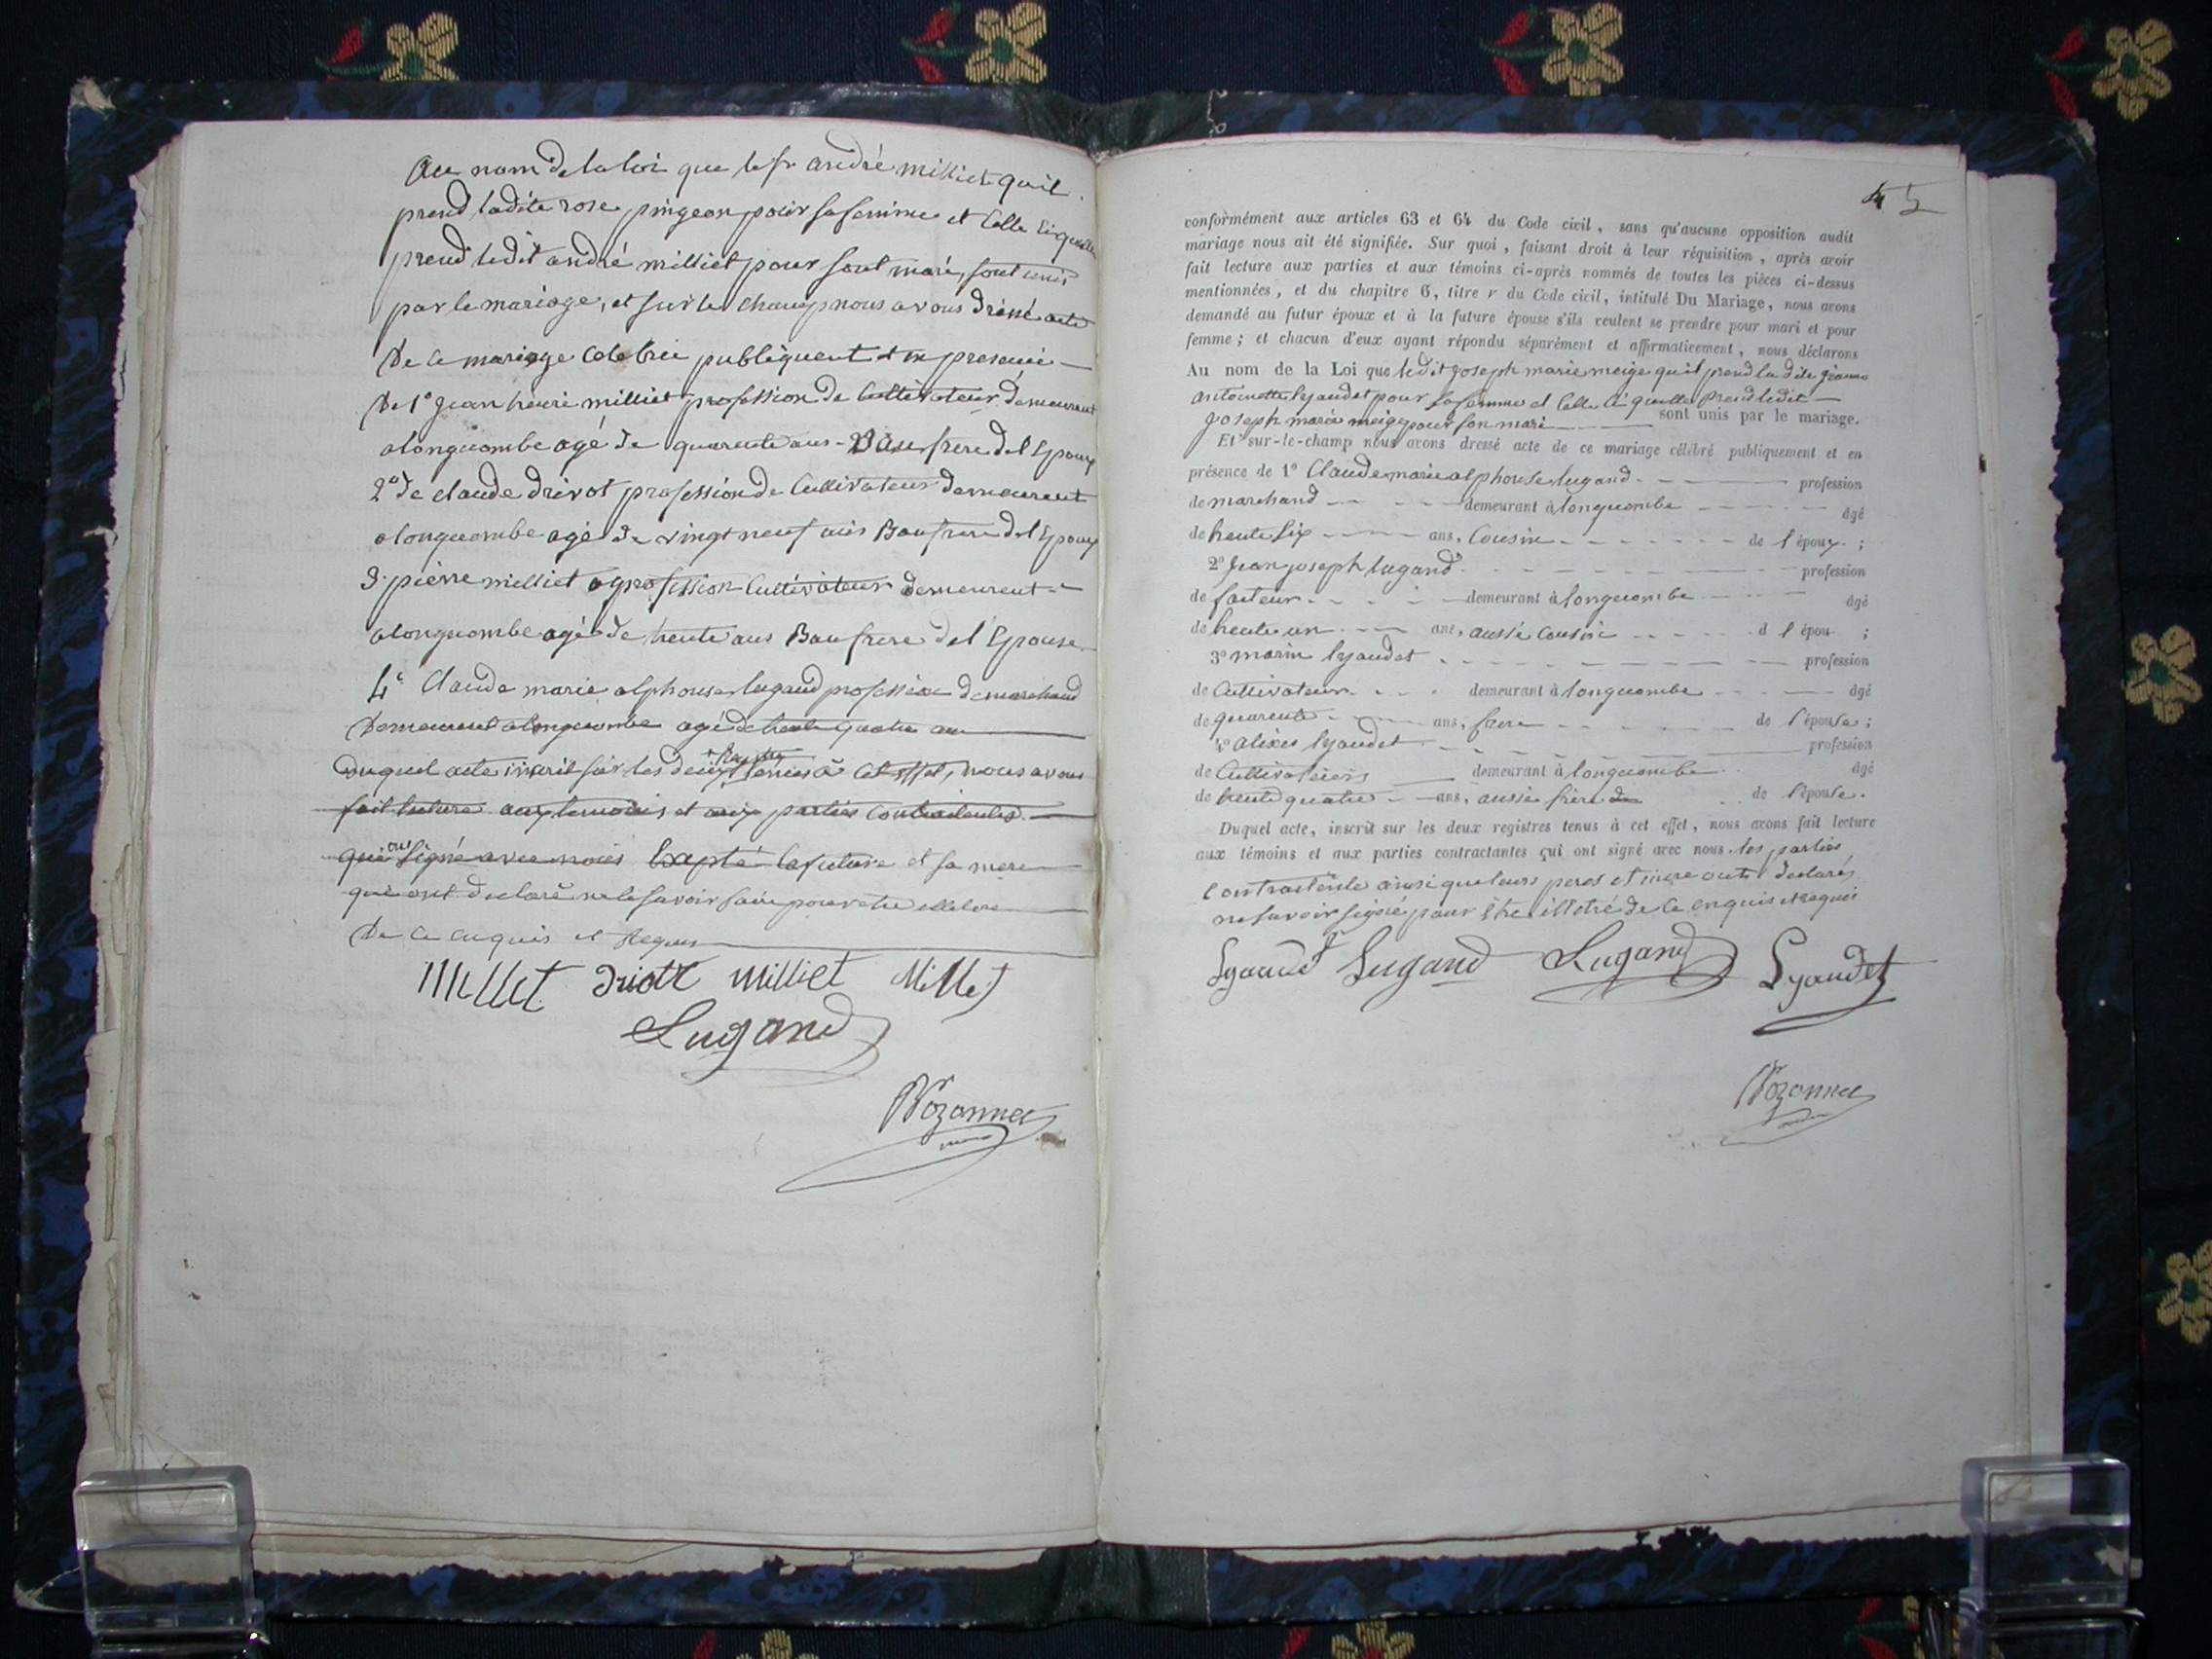 Au nom de la loi que le sr andré milliet quil
prend ladite rose pingeon pour sa femme et celle ci quelle
prend ledit andré milliet pour sont mari, sont unis
par le mariage, et sur le champ nous avons dressé acte
De ce mariage celebrée publiquent et en presence
De 1° jean henri milliet profession de Cultivateur demeurent
a longecombe agé de quarente ans Bau frere de l'Epoux
2° de claude drivot profession de Cultivateur demeurent
a longecombe agé de vingt neuf ans Bau frere del Epoux
3° pierre milliet profession Cultivateur demeurent
a longecombe agé de trente ans Bau frere del Epouse
4° Claude marie alphonse lugand profession de marchand
Demeurent a longecombe agé de trente quatre ans
Duquel acte inscrit sur les deux registres tenues à cet effet, nous avons
fait lecture aux temoins et aux parties contractentes
qui on signé avec nous Exapté la future et sa mere
qui ont declaré ne le savoir faire pour etre illetré
De ce enquis et Requis
Milliet Driott Milliet Milliet
Lugand
Pozonnet
45
conformément aux articles 63 et 64 du Code civil, sans qu'aucune opposition audit
mariage nous ait été signifiée. Sur quoi, faisant droit à leur réquisition, après avoir
fait lecture aux parties et aux témoins ci-après nommés de toutes les pièces ci-dessus
mentionnées, et du chapitre 6, titre v du Code civil, intitulé Du Mariage, nous avons
demandé au futur époux et à la future épouse s'ils veulent se prendre pour mari et pour
femme; et chacun d'eux ayant répondu séparément et affirmativement, nous déclarons
Au nom de la Loi que ledit joseph marie meige quil prend la dite jeanne
antoinette lyaudet pour sa femme et celle ci quelle prend ledit
joseph marie meige pour son mari sont unis par le mariage.
Et sur-le-champ nous avons dressé acte de ce mariage célébré publiquement et en
présence de 1° Claude marie alphonse lugand profession
de marchand demeurant à longecombe âgé
de trente six ans, Cousin de l'époux;
2° jean joseph lugand profession
de facteur demeurant à longecombe âgé
de trente un ans, aussi Cousin d l'épou ;
3° marin lyaudet profession
de Cultivateur demeurant à longecombe âgé
de quarente ans, frere de l'épouse;
4° alixis lyaudet profession
de Cultivateur demeurant à longecombe âgé
de trente quatre ans, aussi frère de l'épouse.
Duquel acte, inscrit sur les deux registres tenus à cet effet, nous avons fait lecture
aux témoins et aux parties contractantes qui ont signé avec nous les parties
contractente ainsi que leurs peres et mere onts declarés
ne savoir signé pour être illetré de ce enquis et requis
Lyaudet Lugand Lugand Lyaudet
Pozonnet